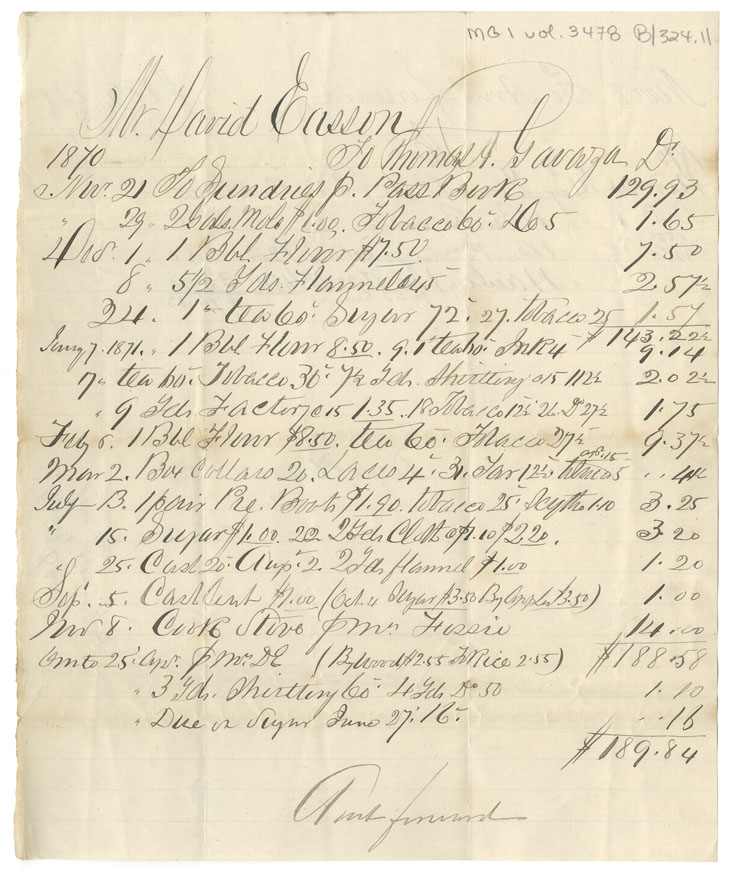 MG 1 vol. 3478 B/324.11
Mr David Easson
1870 To Thomas A. Gavaza Dr
Nov. 21 To Sundries p. Pass Book 129.93
" 29 " 2 Gals Mols $1.00. Tobacco 60 c 1.65
Dec. 1 " 1 Bbl. Flour $7.50 7.50
8 " 5 1/2 Yds. Flannel @ 45 2.57½
24. 1 " tea 60 c Sugar 72 c 27. tobacco 25 1.57
$143.22½
Jany 7. 1871. " 1 Bbl Flour 8.50. 9. 1 " tea 60 c Ink 4 9.14
" tea 60 c Tobacco 30 c 7½ Yds. Shirting @ 15 112½ 2.02½
" 9 Yds Factory @ 15 1.35. 18 Tobacco 12½ 26 Do 27½ 1.75
Feb 6. 1 Bbl Flour $8.50. tea 60 c Tobacco 27½ 9.37½
Mar 2. Box Collars 20. Laces 4 c 31. Tar 12½
July 13. 1 pair Boots $1.90. tobacco 25 c Scythe 1.10 3.25
" 15. Sugar $1.00. 22 2 Yds Cloth @ $1.10 $2.20. 3.20
" 25. Cash 20 c Aug 2. 2 Yds flannel $1.00 1.20
Sep. 5. Cash lent $1.00 (Oct. 4 Sugar $3.50 By Apples $3.50) 1.00
Nov 8. Cook Stove p Mr Fossie 14.00
25 p Mr D E (By Wood $2.55 To Rice 2.55) $188.58
" 3 Yds. Shirting 60 c 4 Yds Do 50 1.10
" Due on Sugar June 27. 16 c . . 16
$189.84
Amt forward